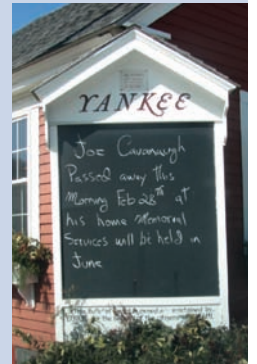 YANKEE
Joe Cavanaugh
Passed away this
Morning Feb 28th at
his home Memorial
Services will be held in
June